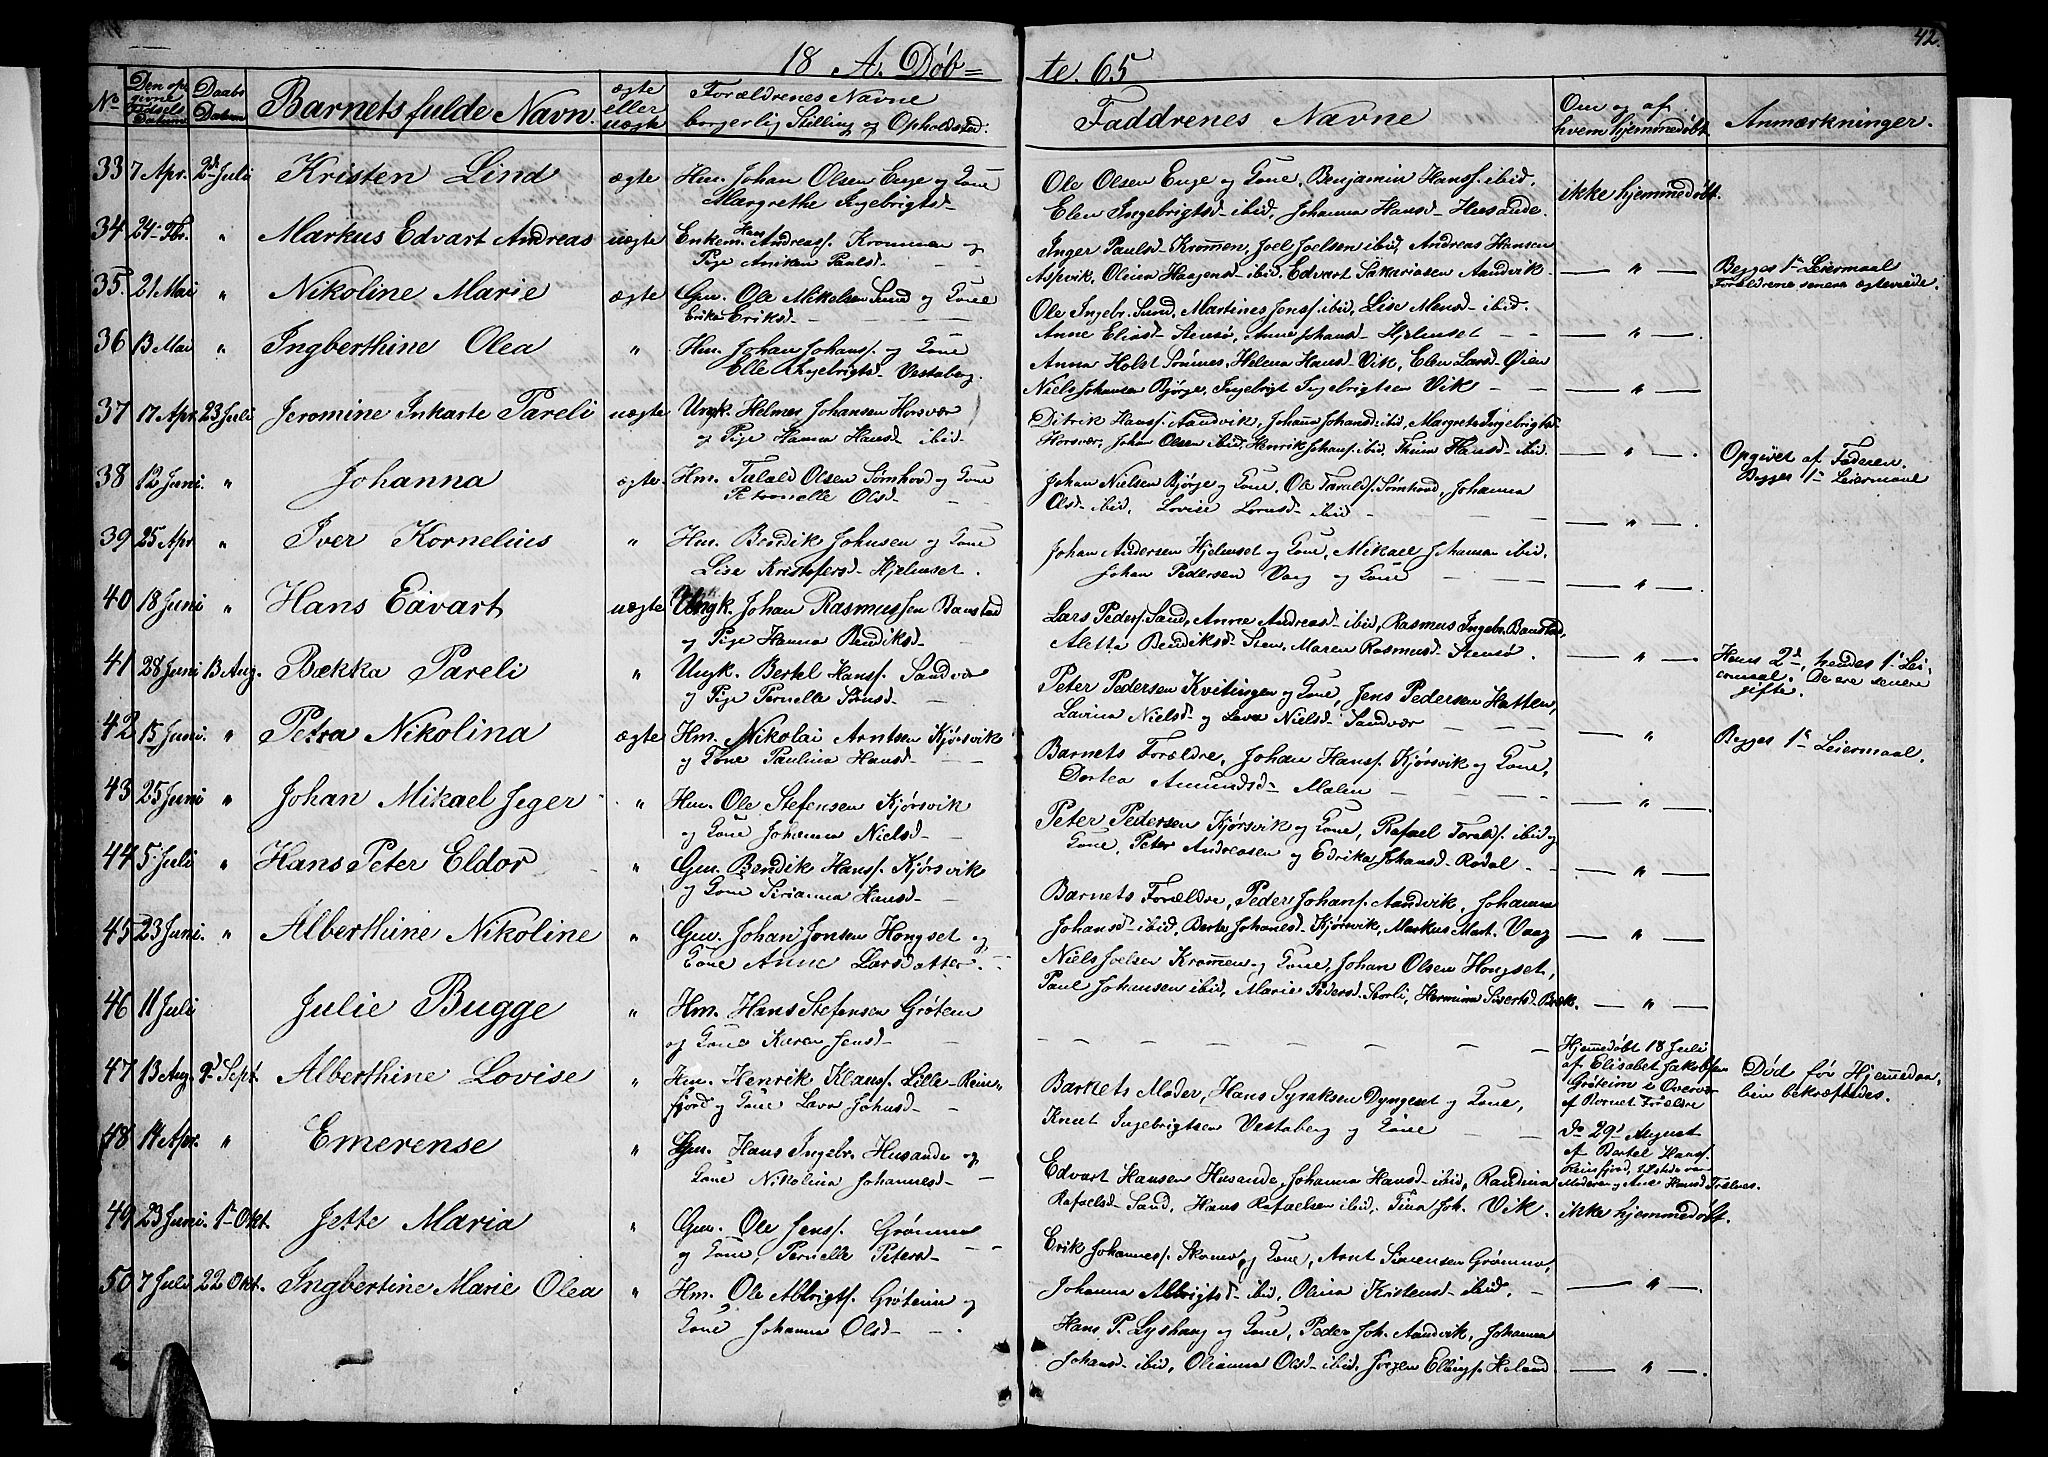 42.
18 A. Døb= te. 65
No
Den op-
givne
Fødsels
Datum
Daabs
Datum
Barnets fulde Navn.
ægte
eller
uægte
Forældrenes Navne
borgerlig Stilling og Opholdsted.
Faddrenes Navne
Om og af
hvem hjemmedøbt
Anmærkninger.
33 7 Apr. 2d Juli Kristen Lind ægte Hm. Johan Olsen Enge og Kone
Margrethe Ingebrigtsd-
Ole Olsen Enge og Kone, Benjamin Hansf. ibid.
Elen Ingebrigtsd- ibid, Johanna Hansd- Husande.
ikke hjemmedøbt.
34 24- Fbr. " Markus Edvart Andreas uægte Enkem. Hans Andreasf. Krommen og
Pige Aniken Paulsd - -
Inger Paulsd- Krommen, Joel Joelsen ibid, Andreas Hansen
Aspvik, Oleina Haagensd- ibid. Edvart Sakariasen Aandvik-
— " —
Begges 1ste Leiermaal
Forældrene senere ægteviede.
35. 21 Mai " Nikoline Marie ægte Gm. Ole Mikkelsen Sund og Kone
Erika Eriksd- - -
Ole Ingebr. Sund, Martines Jensf. ibid, Lise Monsd- ibid.
Anne Eliasd- Stensø, Anne Johansd- Hjelmset - -
— " —
36 13 Mai " Ingberthine Olea " Hm. Johan Johansf. og Kone
Elle Ingebrigtsd- Vestaberg.
Anna Holst Sømnes, Helena Hansd- Vik, Elen Larsd- Øien
Niels Johansen Bjørge, Ingebrigt Ingebrigtsen Vik - -
— " —
37 17 Apr. 23 Juli Jeromine Inkarte Pareli uægte Ungk. Helmer Johansen Horsvær
og Pige Hanna Hansd- ibid-
Ditrik Hansf. Aandvik, Johanna Johansd- ibid, Margrete Ingebrigtsd-
Horsvær, Johan Olsen ibid, Henrik Johansf. ibid, Thina Hansd- ibid.
— " —
Opgivet af Faderen.
Begges 1ste Leiermaal
38 12 Juni. " Johanna ægte Hm. Talald Olsen Sørnhov og Kone
Petronelle Olsd- -
Johan Nielsen Bjørge og Kone, Ole Taraldsf. Sørnhov, Johanna
Olsd- ibid, Lovise Lornsd- ibid -
— " —
39 25 Apr " Iver Kornelius " Hm. Bendik Johnsen og Kone
Lisa Kristofersd- Hjelmset.
Johan Andersen Hjelmset og Kone, Mikael Johansen ibid.
Johan Pedersen Vaag og Kone - -
— " —
40 18 Juni " Hans Edvart uægte Ungk. Johan Rasmussen Banstad
og Pige Hanna Bendiksd- -
Lars Pedersf. Sand, Anne Andreasd- ibid, Rasmus Ingebr. Banstad,
Aletta Bendiksd- Sten, Maren Rasmusd- Stensø.
— " —
Hans 2d, hendes 1ste Lei-
ermaal. De ere senere
gifte.
41 28 Juni 13 Aug. Bækka Pareli " Ungk. Bertel Hansf. Sandvær
og Pige Pernelle Sørnsd- -
Peter Pedersen Kvitingen og Kone, Jens Pedersen Hatten,
Lavina Nielsd- og Lava Nielsd- Sandvær - -
— " —
Begges 1ste Leiermaal.
42 15 Juni. " Petra Nikolina ægte Hm. Nikolai Arntsen Kjørsvik
og Kone Paulina Hansd- - -
Barnets Forældre, Johan Hansf. Kjørsvik og Kone,
Dortea Amundsd- Malen - - -
— " —
43 25 Juni " Johan Mikael Jeger " Hm. Ole Stefensen Kjørsvik
og Kone Johanna Nielsd- -
Peter Pedersen Kjørsvik og Kone, Rafael Toraldsf. ibid og
Kone, Peter Andreasen og Edrika Johansd- Rodal - -
— " —
44 5 Juli " Hans Peter Eldor " Gm. Bendik Hansf. Kjørsvik
og Kone Sirianna Hansd- -
Barnets Forældre, Peder Johansf. Aandvik, Johanna
Johansd- ibid, Berte Johanesd- Kjørsvik, Markus Mart. Vaag
— " —
45 23 Juni. " Alberthine Nikoline " Gm. Johan Jonsen Hongset og
Kone Anne Larsdatter. -
Niels Joelsen Krommen og Kone, Johan Olsen Hongset,
Paul Johansen ibid, Marie Pedersd- Storli, Hermina Sivertsd- Bræk.
— " —
46 11 Juli Julie Bugge " Hm. Hans Stefensen Grøtem
og Kone Karen Jensd- -
- - - - - -
Hjemmedøbt 18 Juli
af Elisabet Jakobsen
Grøteim i Overvær
af Barnets Forældre
Død før Hjemmedaa-
ben bekræftedes.
47 13 Aug. 9d Sept. Alberthine Lovise " Hm. Henrik Klausf. Lille-Rein-
fjord og Kone Lava Johnsd- -
Barnets Moder, Hans Syraksen Dyngent og Kone,
Knut Ingebrigtsen Vestaberg og Kone - -
Do 29d August
af Bertel Hansf.
Reinsfjord, tilstede var
Moderen og Ane Hansd Trælnes.
48 14 Apr. " Emerense " Gm. Hans Ingebr. Husande og
Kone Nikolina Johannesd- -
Edvart Hansen Husande, Johanna Hansd- ibid, Randina
Rafaelsd- Sand, Hans Rafaelsen ibid, Tina Joh. Vik.
ikke hjemmedøbt.
49 23 Juni. 1ste Okt. Jette Maria " Gm. Ole Jensf. Grønmo
og Kone, Pernelle Petersd- - -
Erik Johannesf. Skomo, og Kone, Arnt Sørensen Grønmo,
Johanna Albrigtsd- ibid, Olina Kristensd- ibid. -
— " —
50 7 Juli 22 Okt. Ingbertine Marie Olea " Hm. Ole Albrigtsf. Grøteim og
Kone Johanna Olsd- -.
Hans P. Lyshaug og Kone, Peder Joh. Aandvik, Johanna
Johansd- ibid, Olianna Olsd- ibid, Jørgen Ellingsf. Heland
— " —